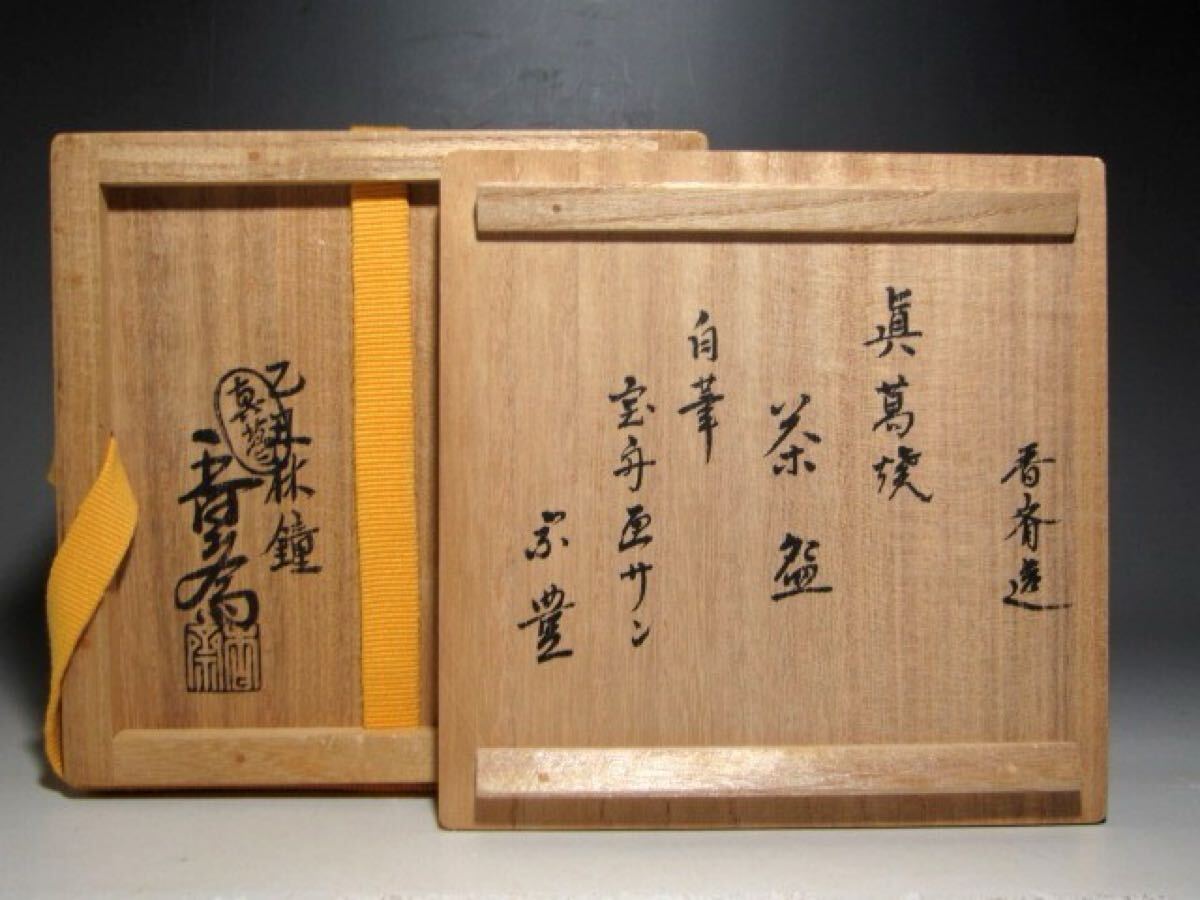 香斎造
眞葛焼
茶盌
自筆
宝舟画サン
宗豊
乙丑林鐘
真葛
香斎